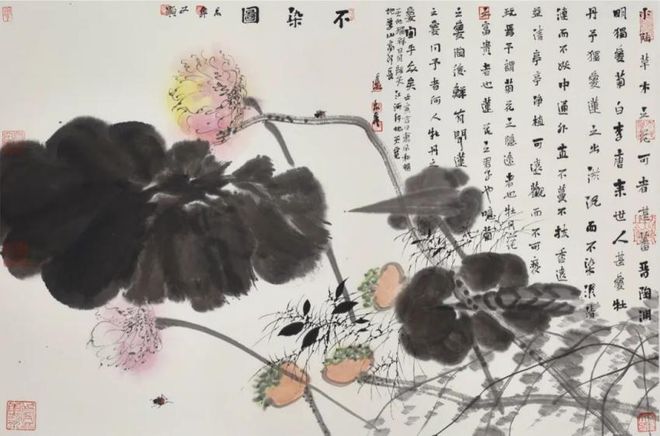 水陸草木之花可愛者甚蕃晉陶淵
明獨愛菊自李唐來世人甚愛牡
丹予獨愛蓮之出淤泥而不染濯清
漣而不妖中通外直不蔓不枝香遠
益清亭亭淨植可遠觀而不可褻
玩焉予謂菊花之隱逸者也牡丹花
之富貴者也蓮花之君子也噫菊
之愛陶後鮮有聞蓮
之愛同予者何人牡丹之
愛宜乎眾矣
不染圖